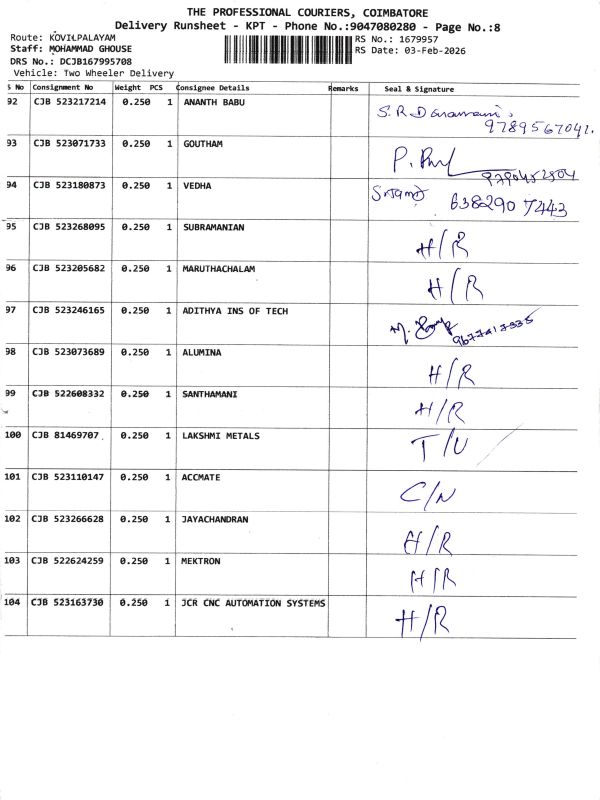 THE PROFESSIONAL COURIERS, COIMBATORE
Delivery Runsheet - KPT - Phone No.:9047080280 - Page No.:8
Route: KOVILPALAYAM RS No.: 1679957
Staff: MOHAMMAD GHOUSE RS Date: 03-Feb-2026
DRS No.: DCJB167995708
Vehicle: Two Wheeler Delivery
S No Consignment No Weight PCS Consignee Details Remarks Seal & Signature
92 CJB 523217214 0.250 1 ANANTH BABU S.R.D
9789567041.
93 CJB 523071733 0.250 1 GOUTHAM P.
94 CJB 523180873 0.250 1 VEDHA 6382907443
95 CJB 523268095 0.250 1 SUBRAMANIAN H/R
96 CJB 523205682 0.250 1 MARUTHACHALAM H/R
97 CJB 523246165 0.250 1 ADITHYA INS OF TECH M.
98 CJB 523073689 0.250 1 ALUMINA H/R
99 CJB 522608332 0.250 1 SANTHAMANI H/R
100 CJB 81469707 0.250 1 LAKSHMI METALS T/U
101 CJB 523110147 0.250 1 ACCMATE C/N
102 CJB 523266628 0.250 1 JAYACHANDRAN H/R
103 CJB 522624259 0.250 1 MEKTRON H/R
104 CJB 523163730 0.250 1 JCR CNC AUTOMATION SYSTEMS H/R